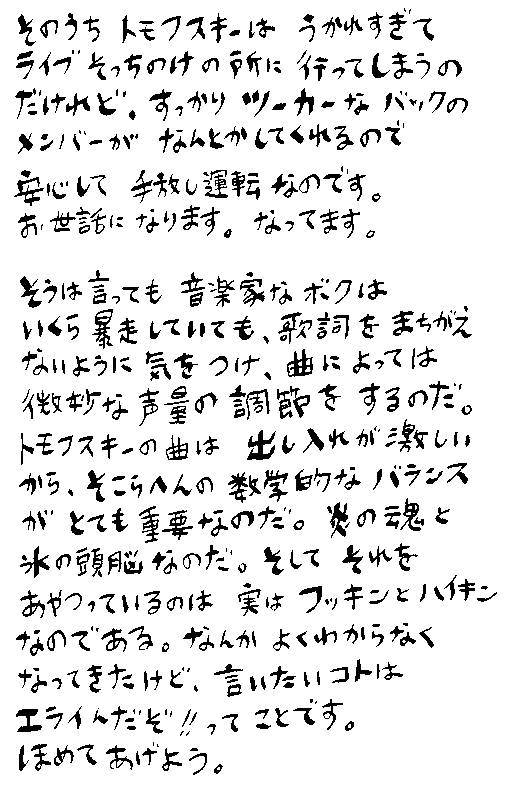 そのうち トモフスキーは うかれすぎて
ライブ そっちのけ の 所に 行ってしまうの
だけれど、すっかり ツーカーな バックの
メンバーが なんとかしてくれるので
安心して 手放し運転 なのです。
お世話に なります。 なってます。
そうは言っても 音楽家な ボクは
いくら 暴走していても、歌詞を まちがえ
ないように 気を つけ、曲に よっては
微妙な 声量の 調節を するのだ。
トモフスキーの 曲は 出し入れが 激しい
から、そこらへんの 数学的な バランス
が とても 重要なのだ。 炎の 魂と
氷の 頭脳 なのだ。 そして それを
あやつっているのは 実は フッキンと ハイキン
なのである。 なんか よくわからなく
なってきたけど、言いたいコトは
エライんだぞ!! って ことです。
ほめて あげよう。